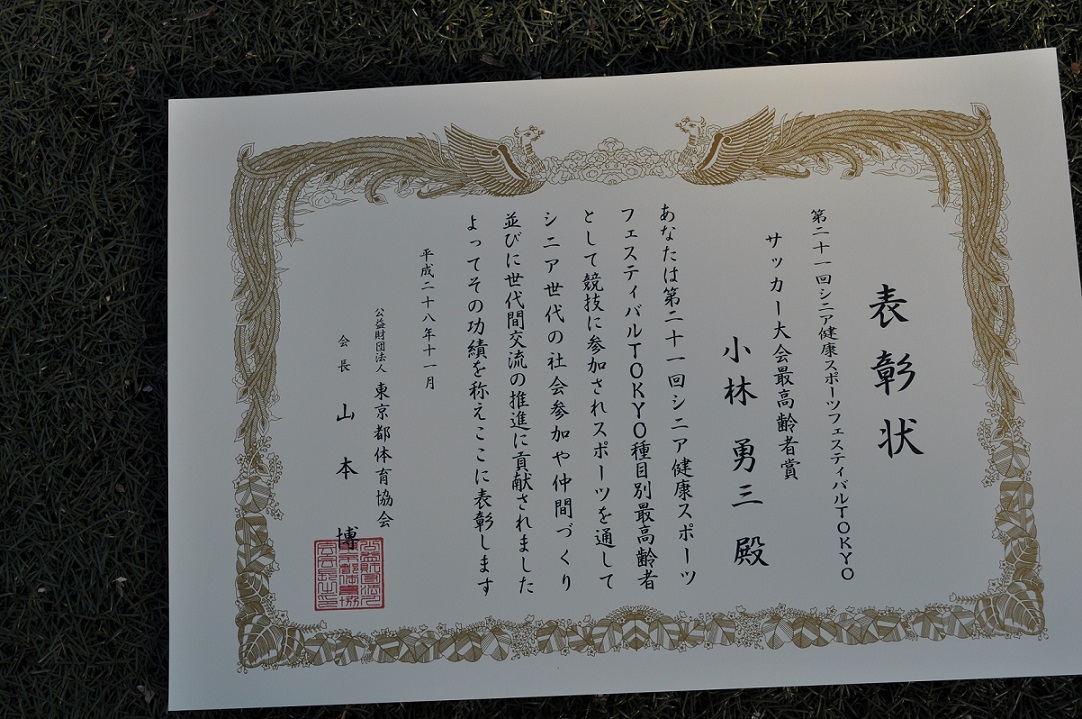 表彰状
第二十一回シニア健康スポーツフェスティバルTOKYO
サッカー大会最高齢者賞
小林 勇三 殿
あなたは第二十一回シニア健康スポーツ
フェスティバルTOKYO種目別最高齢者
として競技に参加されスポーツを通して
シニア世代の社会参加や仲間づくり
並びに世代間交流の推進に貢献されました
よってその功績を称えここに表彰します
平成二十八年十一月
公益財団法人 東京都体育協会
会長 山本 博